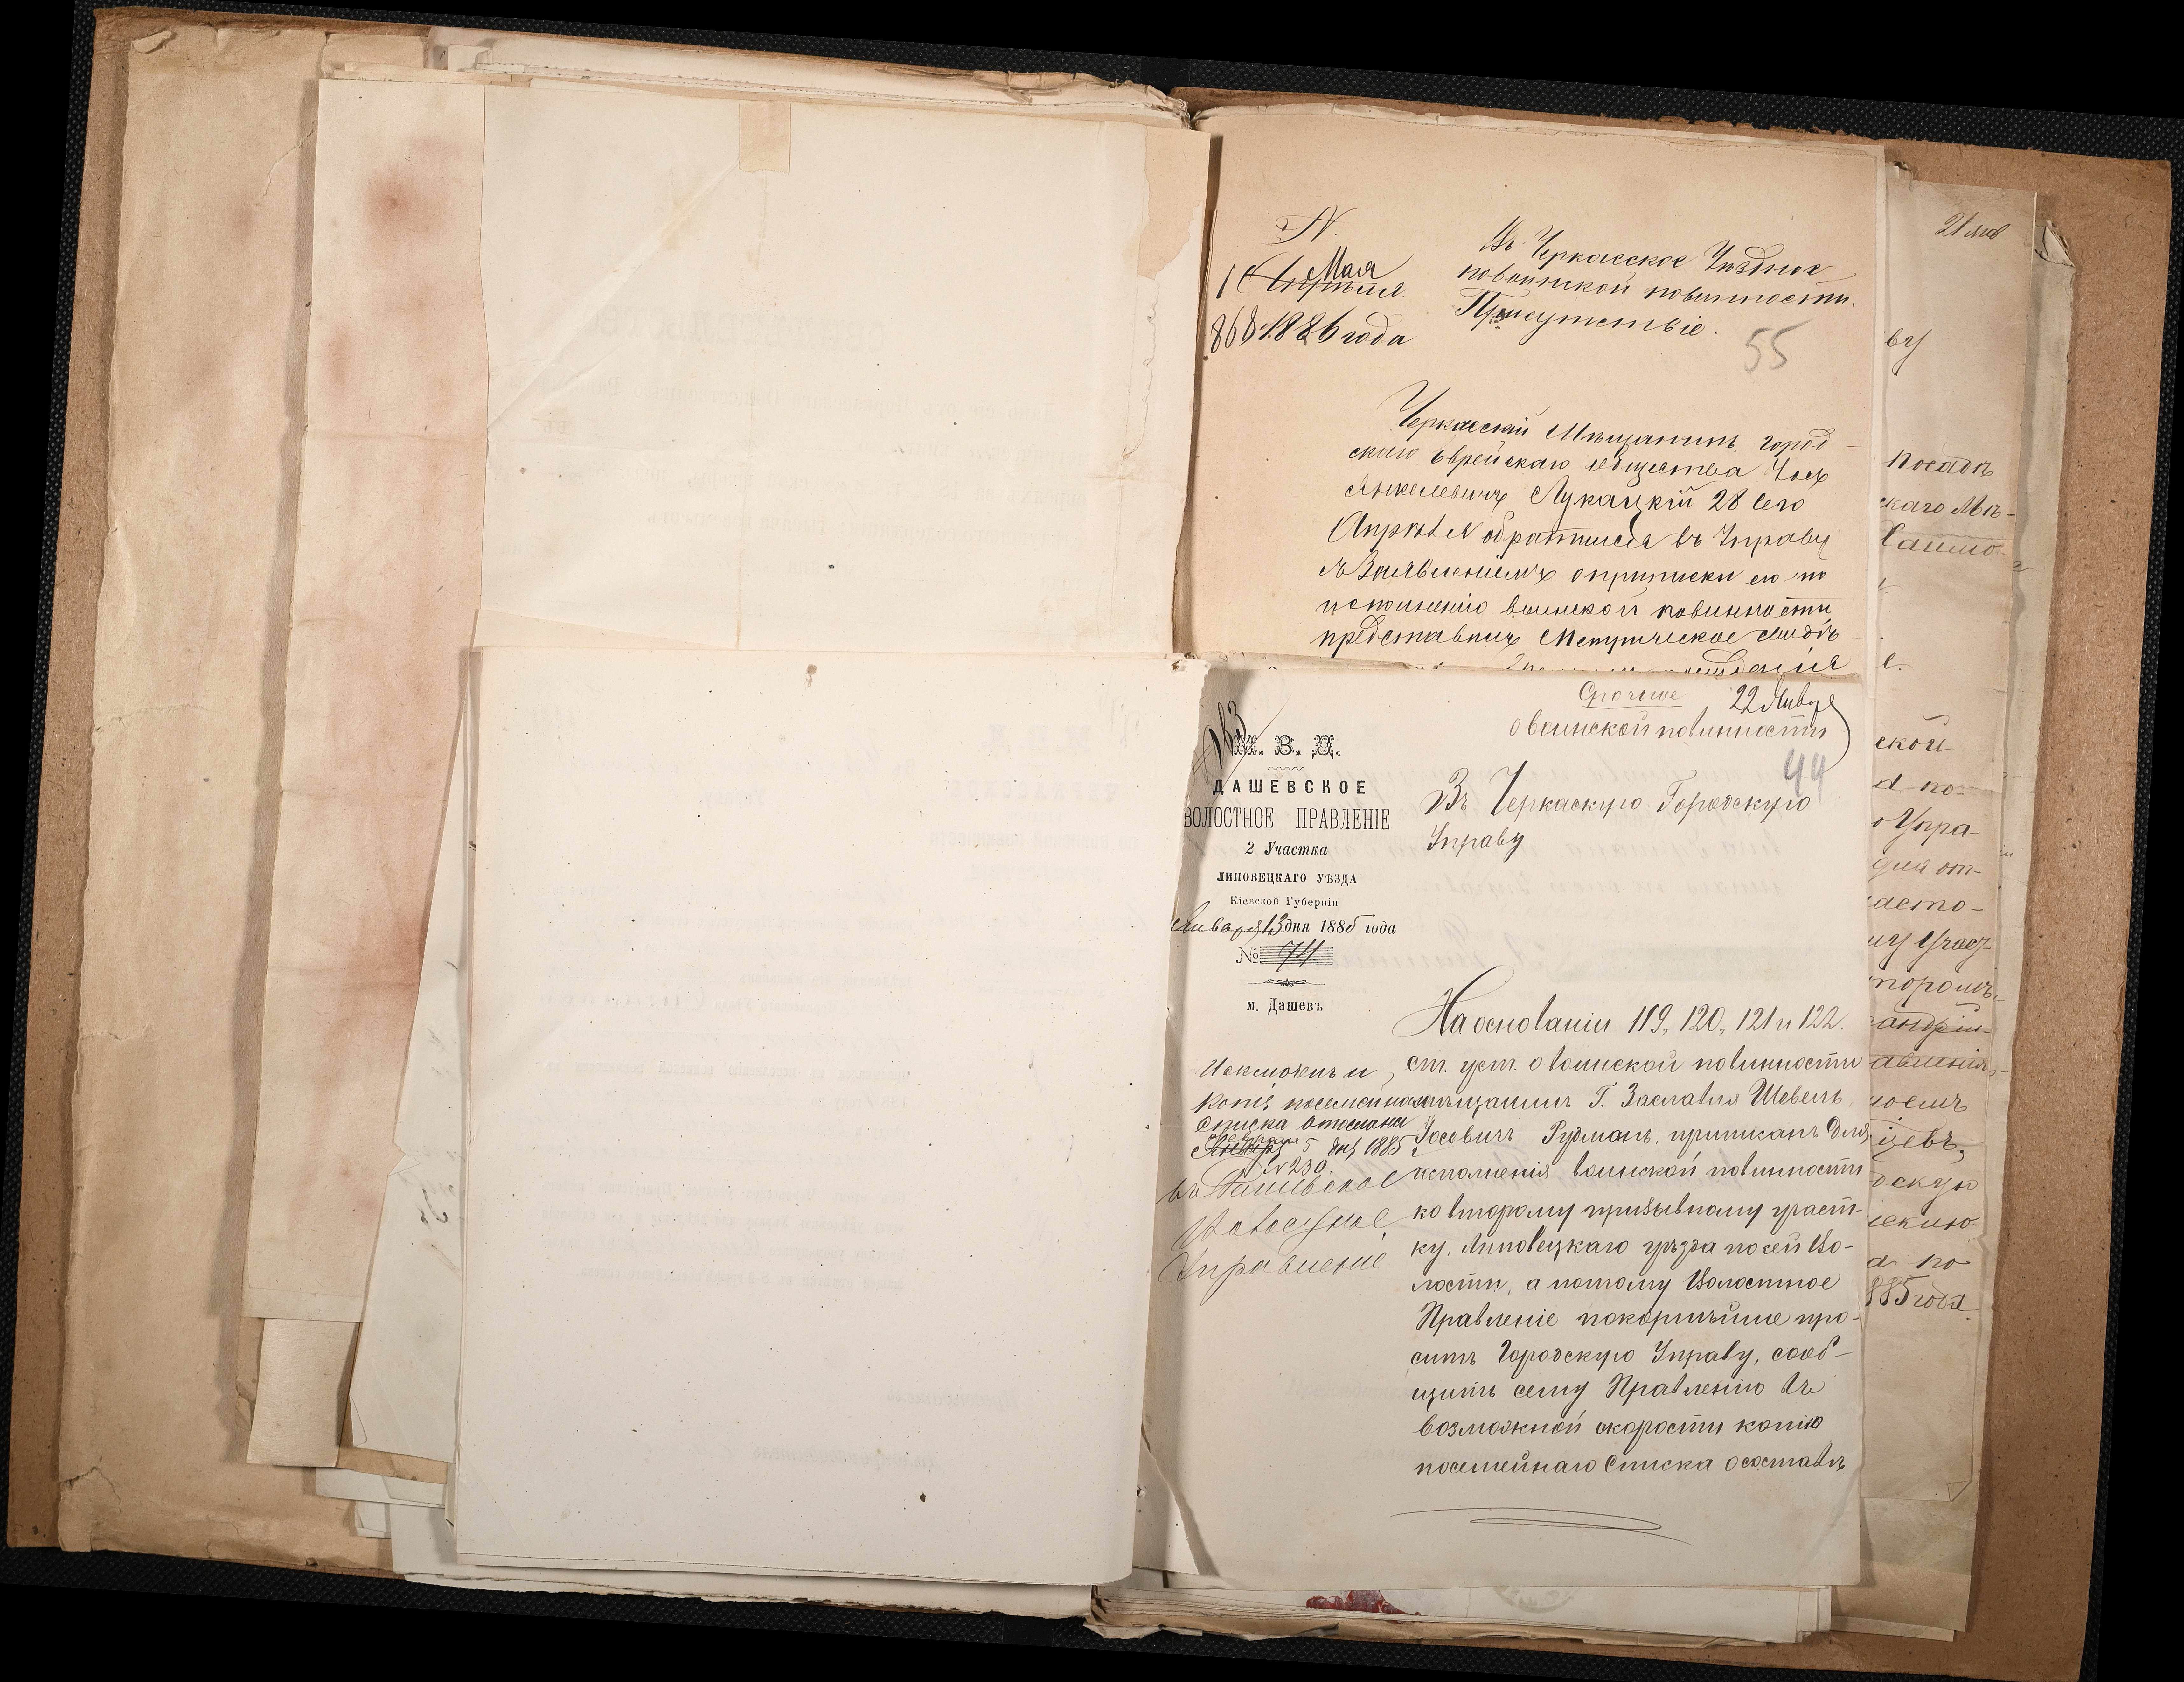 N.
1 Апрѣля Мая
868. 1886 года
Въ Черкасское Уѣздное
по воинской повинности.
Присутствіе.
55
Черкасскій Мѣщанинъ город-
ского Еврейскаго общества
Янкелевичъ Лукацкій 28 сего
Апрѣля обратился въ Управу
съ Заявленіемъ о приписки его по
исполненію воинской повинности
представилъ Метрическое свидѣ
Срочное 22 Января
о воинской повинности
44
163
М. В. Д.
ДАШЕВСКОЕ
ВОЛОСТНОЕ ПРАВЛЕНІЕ
2 Участка
ЛИПОВЕЦКАГО УѢЗДА
Кіевской Губерніи
Января 13 дня 1885 года
№ 74.
м. Дашевъ
Въ Черкаскую Городскую
Управу
На основаніи 119, 120, 121 и 122.
ст. уст. о воинской повинности
мѣщанинъ Г. Заславля Шевель
Іосевичъ Гудманъ, приписанъ для
исполненія воинской повинности
ко второму призывному участ-
ку, Липовецкаго уѣзда по сей Во-
лости, а потому Волостное
Правленіе покорнѣйше про-
ситъ Городскую Управу, сооб-
щить сему Правленію въ
возможной скорости копію
посемейнаго Списка о составѣ
Исключенъ и
Копія посемейнаго
списка отослана
Января Февраля 5 дня 1885
N 230.
въ Дашевское
Волостное
Управленіе
посадѣ
скаго Мѣ-
ской
а по-
Упра-
для от-
насто-
885 года